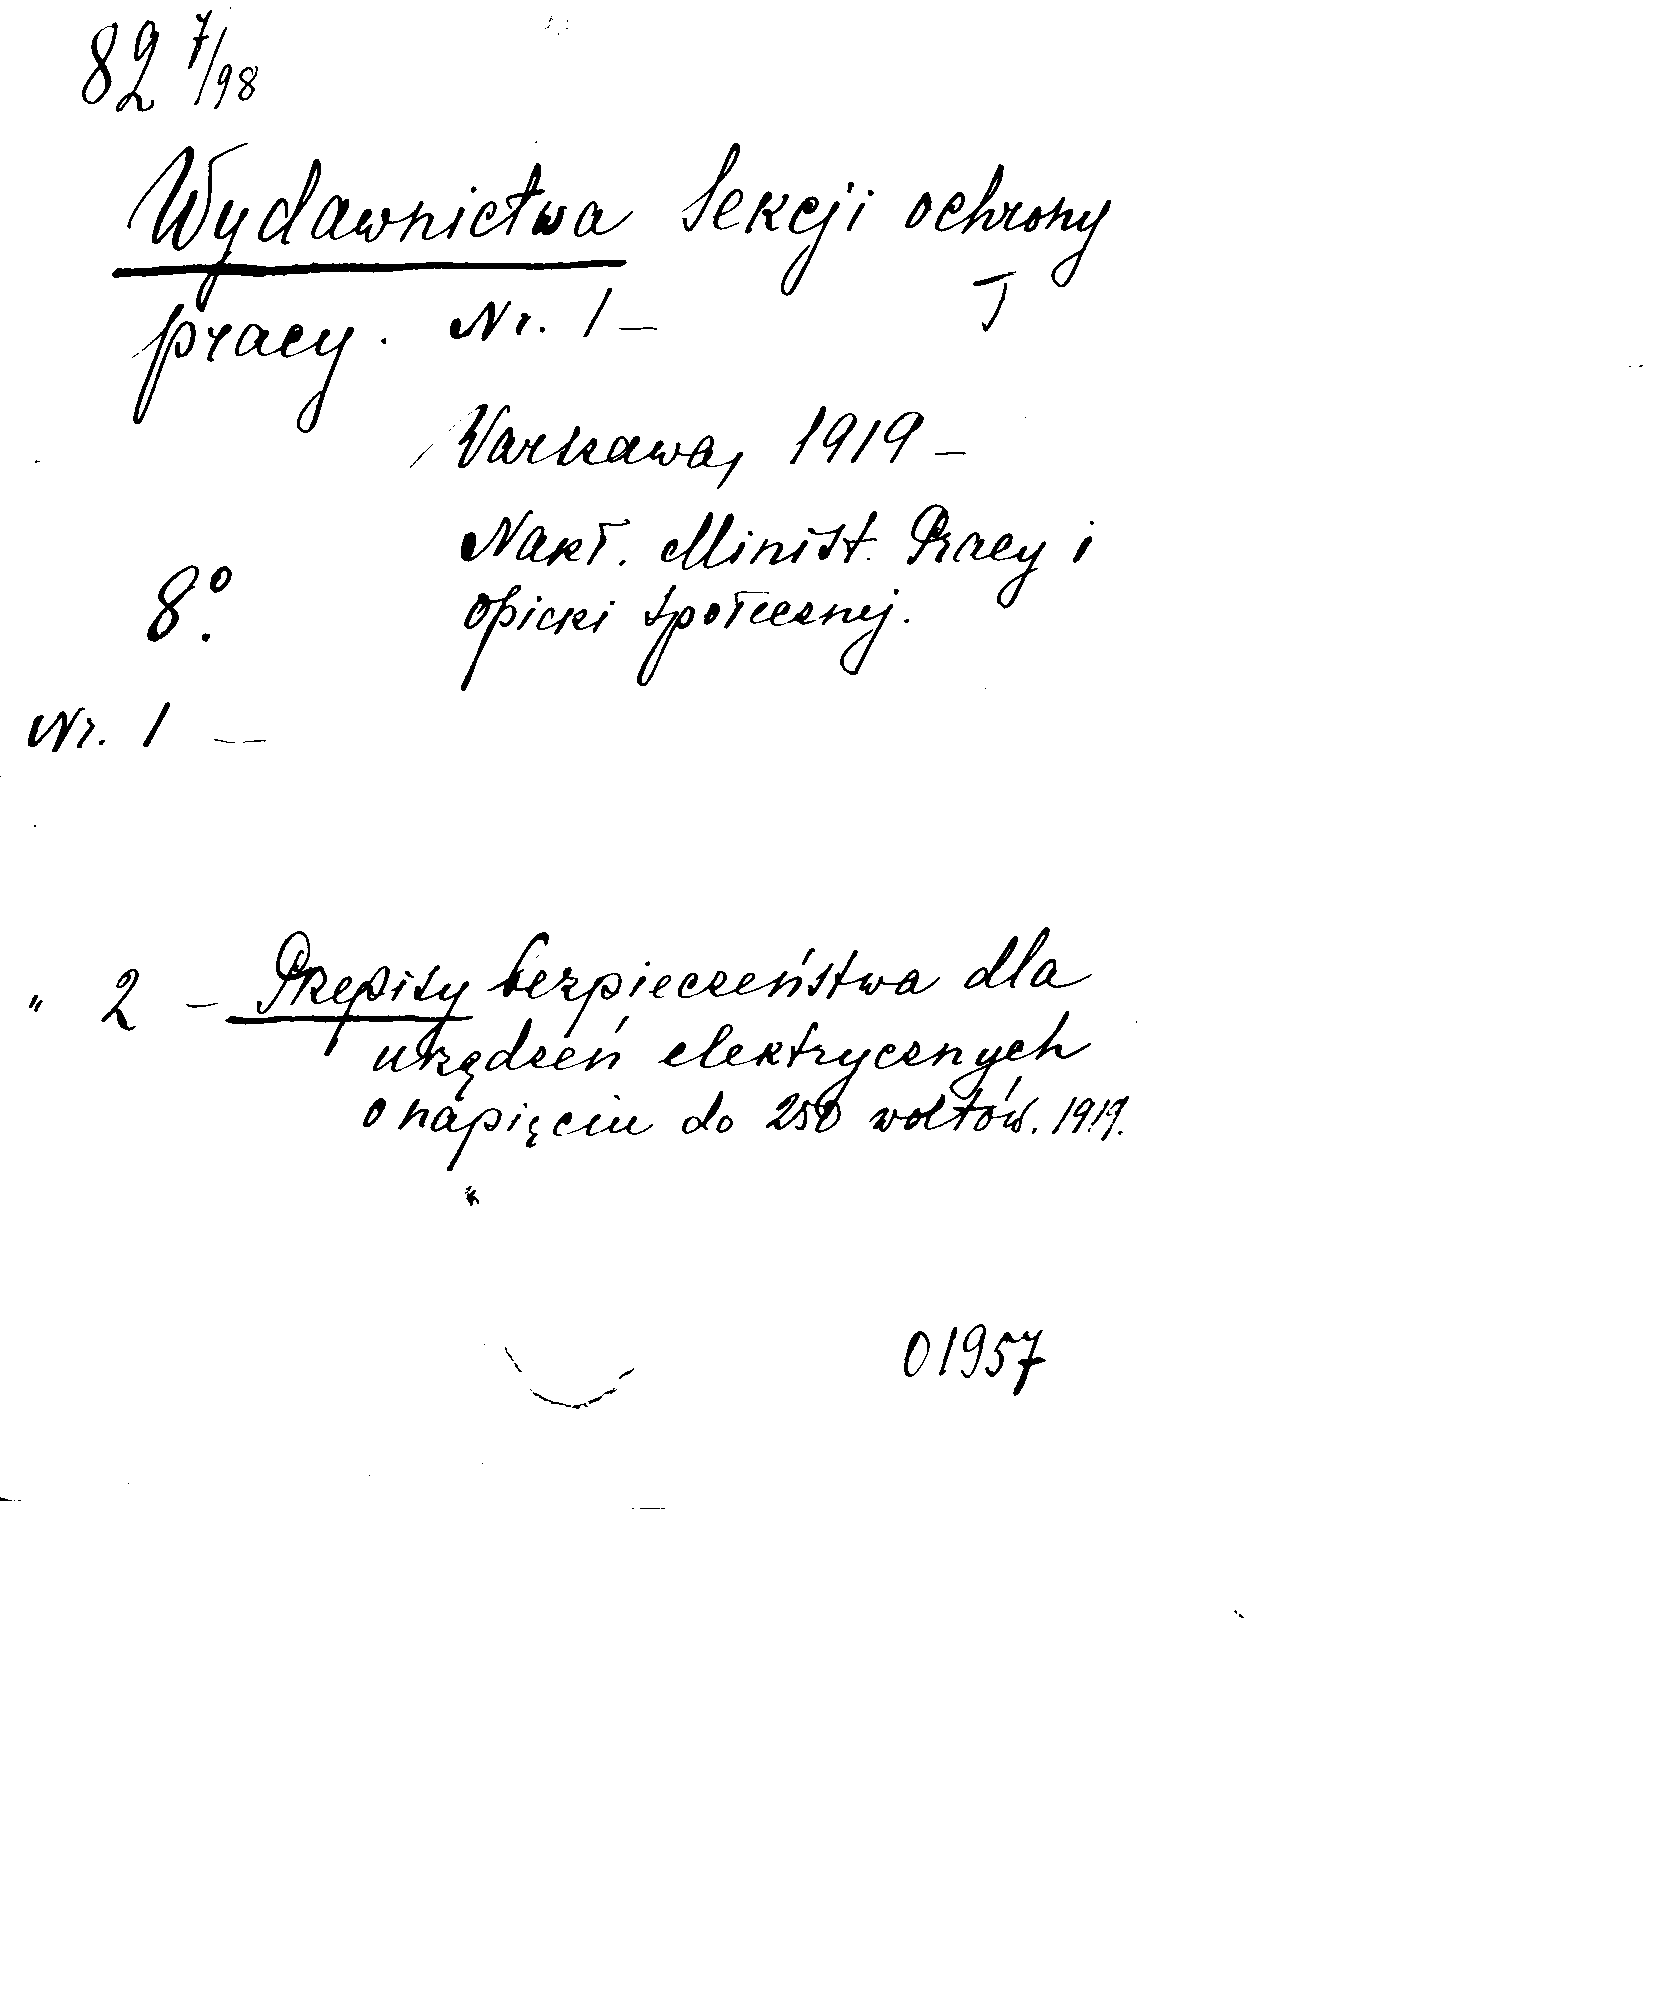 82 7/98
Wydawnictwa Sekcji ochrony
pracy. Nr. 1 —
T
Warszawa, 1919 —
Nakł. Minist. Pracy i
8°.
Opieki społecznej.
Nr. 1 —
" 2 — Przepisy bezpieczeństwa dla
urządzeń elektrycznych
o napięciu do 250 woltów. 1919.
01957